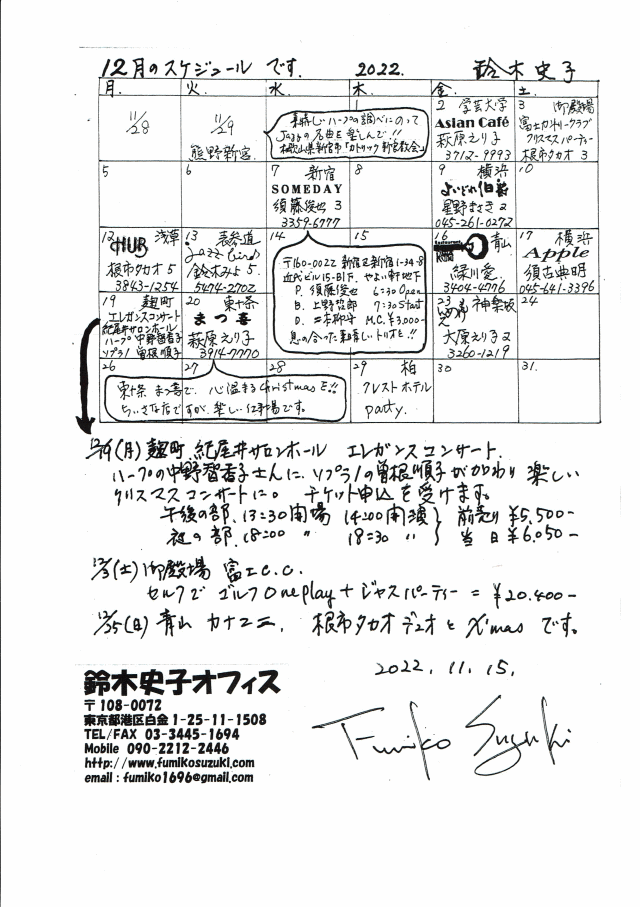 12月のスケジュール です. 2022. 鈴木史子
月. 火. 水. 木. 金. 土.
11/28
11/29
熊野新宮.
素晴しいハープの調べにのって
Jazzの名曲を楽しんで!!
和歌山県新宮市「カトリック新宮教会」
1
2 学芸大学
Asian Café
萩原えり子
3712-9993
3 御殿場
富士カントリークラブ
クリスマスパーティー
根市タカオ 3
5
6
7 新宿
SOMEDAY
須藤俊也 3
3359-6777
8
9 横浜
よいどれ伯爵
星野まさき 2
045-261-0272
10
12 浅草
HUB
根市タカオ 5
3843-1254
13 表参道
Jazz Bird
鈴木みよ 5.
5474-2702
14
〒160-0022 新宿区新宿1-34-8
近代ビル15-B1F. やよい軒地下
P. 須藤俊也 6:30 Open
B. 上野哲郎 7:30 Start
D. 二本柳守 M.C. ¥3,000-
息の合った素晴しいトリオを!!
15
16 青山
緑川愛.
3404-4776
17 横浜
Apple
須古典明
045-641-3396
19 麹町
エレガンスコンサート
紀尾井サロンホール
ハープ 中野智香子
ソプラノ 曽根順子
20 東十条
まつ喜
萩原えり子
3914-7770
23 神楽坂
大原えり子 2
3260-1219
24
26
27
28
東十条 まつ喜で. 心温まるChristmasを!!
ちいさな店ですが. 楽しい仕事場です.
29 柏
クレストホテル
party.
30
31.
12/19(月) 麹町. 紀尾井サロンホール エレガンスコンサート.
ハープの中野智香子さんに. ソプラノの曽根順子がかわり 楽しい
クリスマスコンサートに。 チケット申込を受けます。
午後の部. 13:30開場 14:00開演 } 前売り ¥5,500-
夜の部. 18:00 〃 18:30 〃 } 当日 ¥6,050-
12/3(土) 御殿場 富士C.C.
セルフで ゴルフ One play + ジャズパーティー = ¥20.400-
12/25(日) 青山 カナユニ. 根市タカオデュオと X'mas です。
2022. 11. 15.
鈴木史子オフィス
〒108-0072
東京都港区白金 1-25-11-1508
TEL/FAX 03-3445-1694
Mobile 090-2212-2446
http://www.fumikosuzuki.com/
email : fumiko1696@gmail.com
Fumiko Suzuki